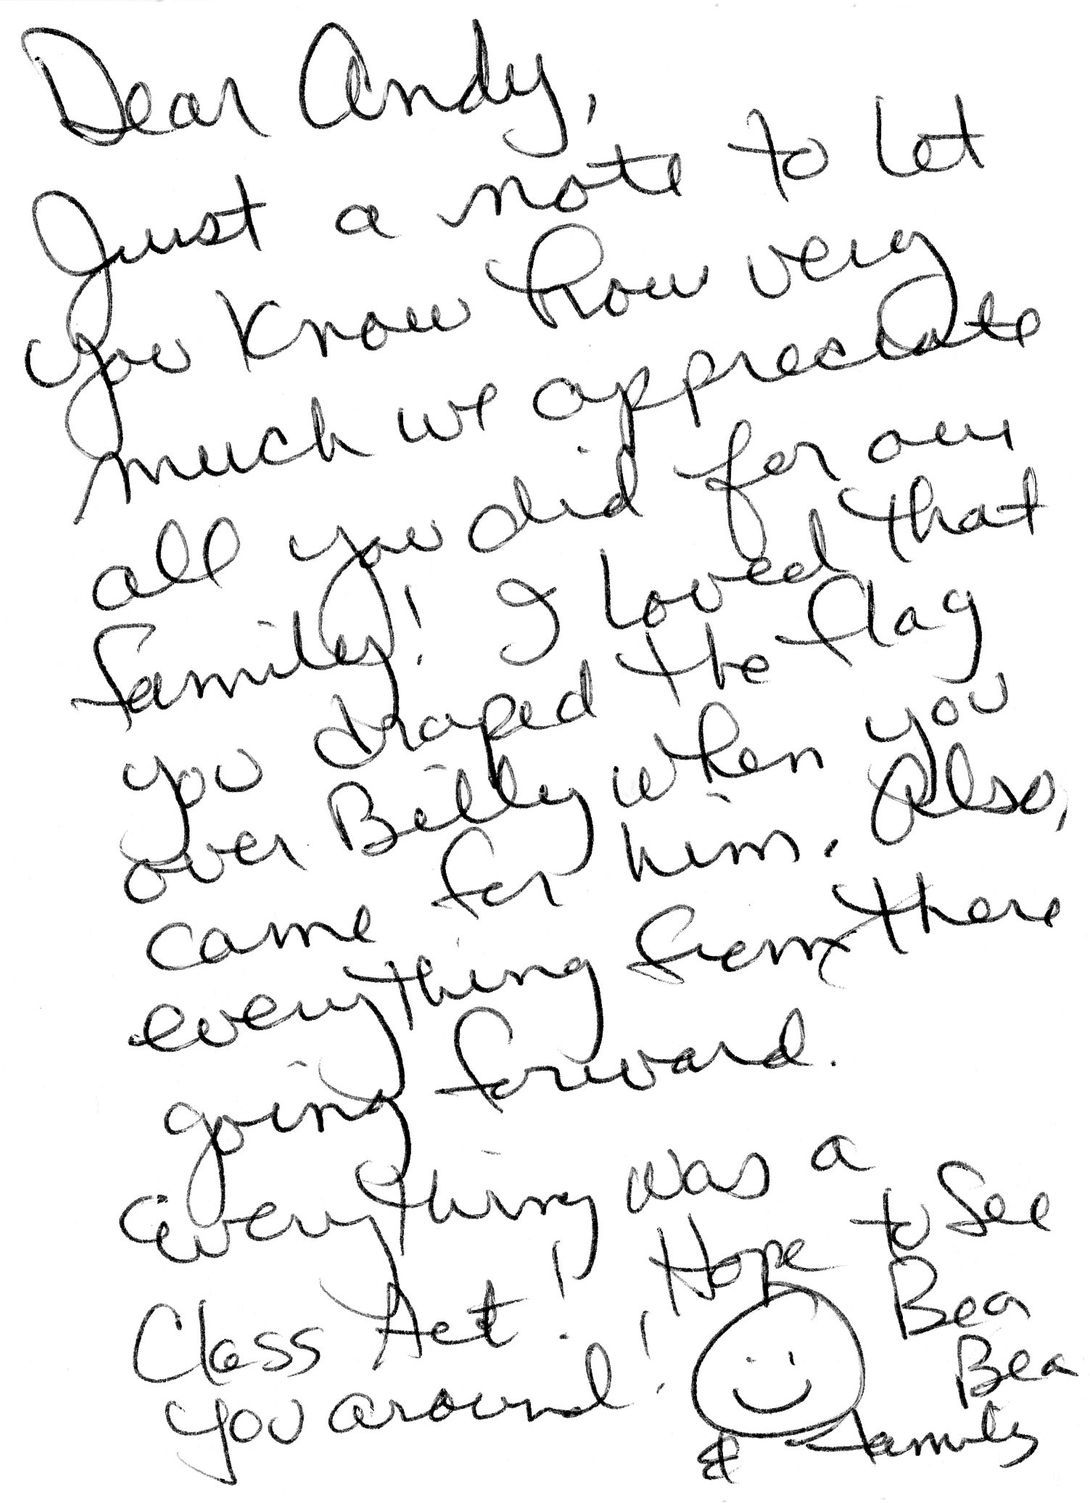 Dear Andy,
Just a note to let
you know how very
much we appreciate
all you did for our
family! I loved that
you draped the flag
over Billy when you
came for him. Also,
everything from there
going forward.
Everything was a
Class Act! Hope to see
you around!
Bea
Bea
& family